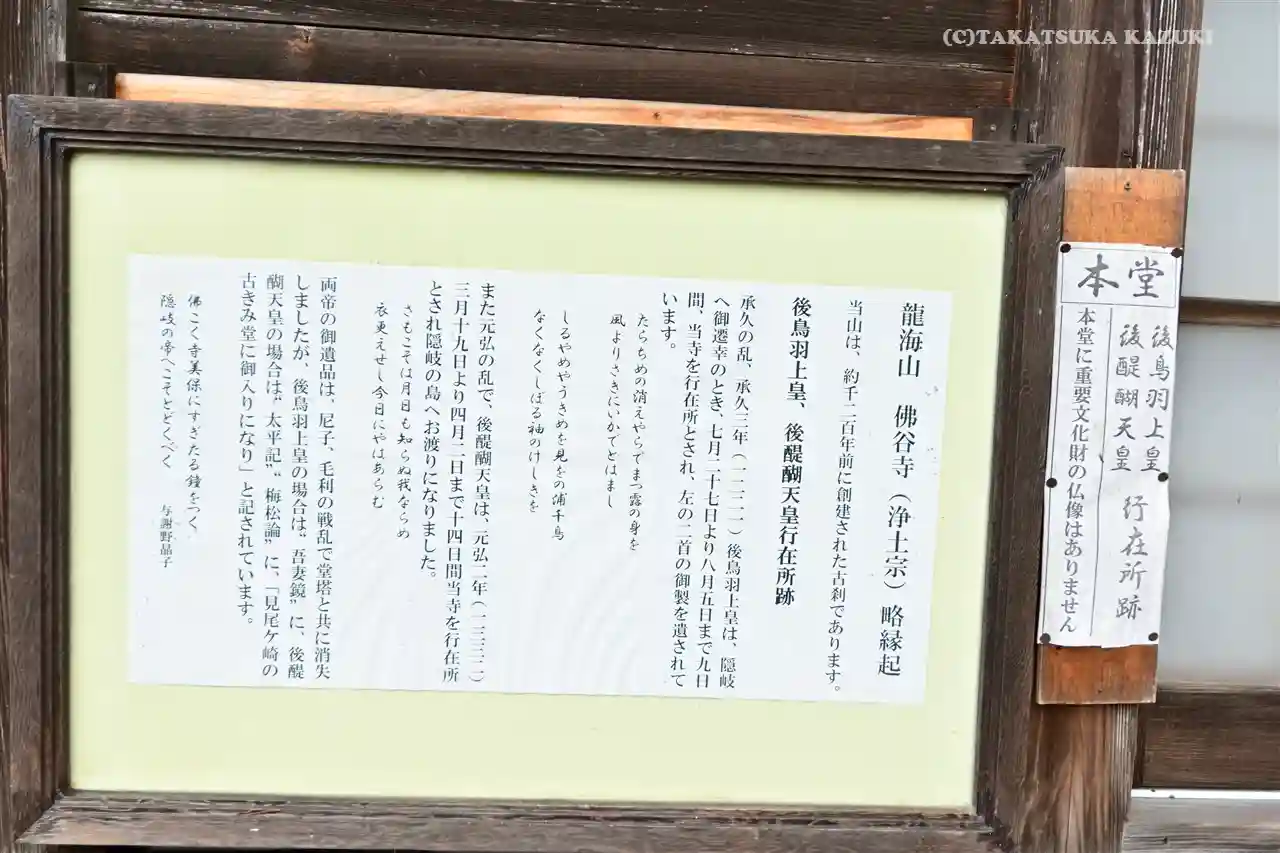 (C)TAKATSUKA KAZUKI
龍海山　佛谷寺（浄土宗）略縁起
当山は、約千二百年前に創建された古刹であります。
後鳥羽上皇、後醍醐天皇行在所跡
承久の乱、承久三年（一二二一）後鳥羽上皇は、隠岐
へ御遷幸のとき、七月二十七日より八月五日まで九日
間、当寺を行在所とされ、左の二首の御製を遺されて
います。
たらちめの消えやらでまつ露の身を
風よりさきにいかでとはまし
しるやめやうきめを見をの浦千鳥
なくなくしぼる袖のけしきを
また元弘の乱で、後醍醐天皇は、元弘二年（一三三二）
三月十九日より四月二日まで十四日間当寺を行在所
とされ隠岐の島へお渡りになりました。
さもこそは月日も知らぬ我ならめ
衣更えせし今日にやはあらむ
両帝の御遺品は、尼子、毛利の戦乱で堂塔と共に消失
しましたが、後鳥羽上皇の場合は“吾妻鏡”に、後醍
醐天皇の場合は“太平記”“梅松論”に、「見尾ケ崎の
古きみ堂に御入りになり」と記されています。
佛こく寺美保にすぎたる鐘をつく
隠岐の帝へこそとどくべく　与謝野晶子
本堂
後鳥羽上皇
後醍醐天皇
行在所跡
本堂に重要文化財の仏像はありません